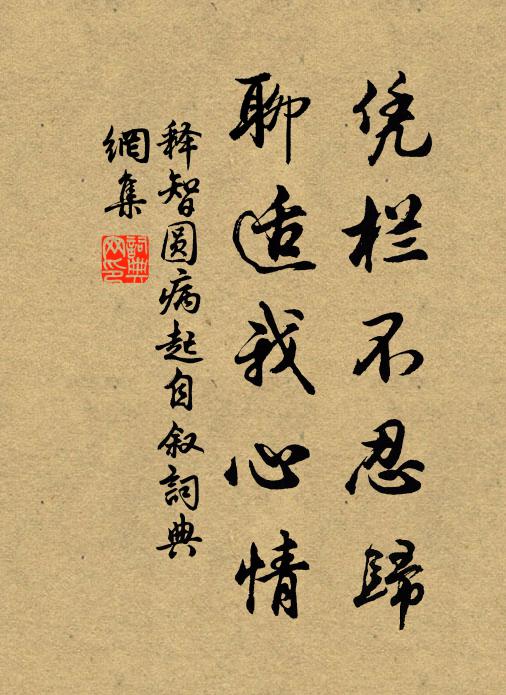 凭栏不忍歸
聊适我心情
释智圆病起自叙詞典
網集
詞典网印